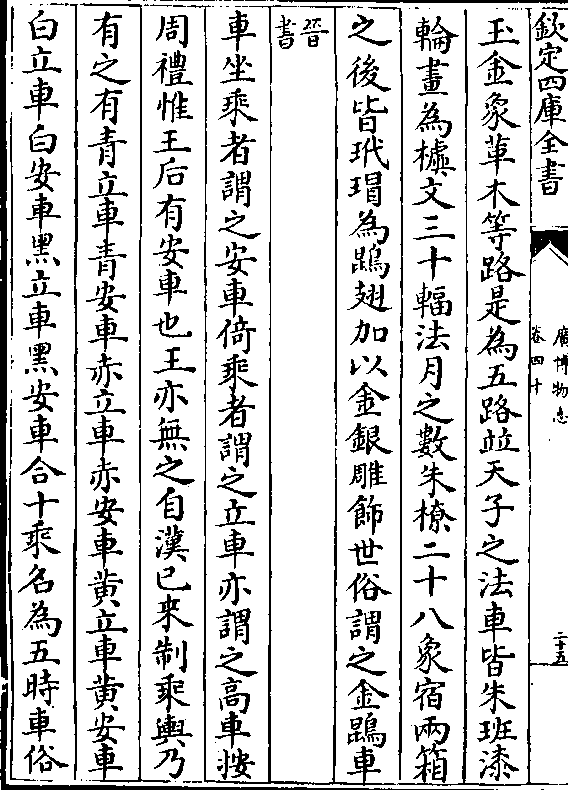 欽定四庫全書
廣博物志
卷四十
二十五
玉金象革木等路是為五路竝天子之法車皆朱班漆
輪畫為㯫文三十輻法月之數朱橑二十八象宿兩箱
之後皆玳瑁為鵾翅加以金銀雕飾世俗謂之金鵾車
晉書
車坐乘者謂之安車倚乘者謂之立車亦謂之髙車按
周禮惟王后有安車也王亦無之自漢已来制乘輿乃
有之有青立車青安車赤立車赤安車黄立車黄安車
白立車白安車黑立車黑安車合十乘名為五時車俗